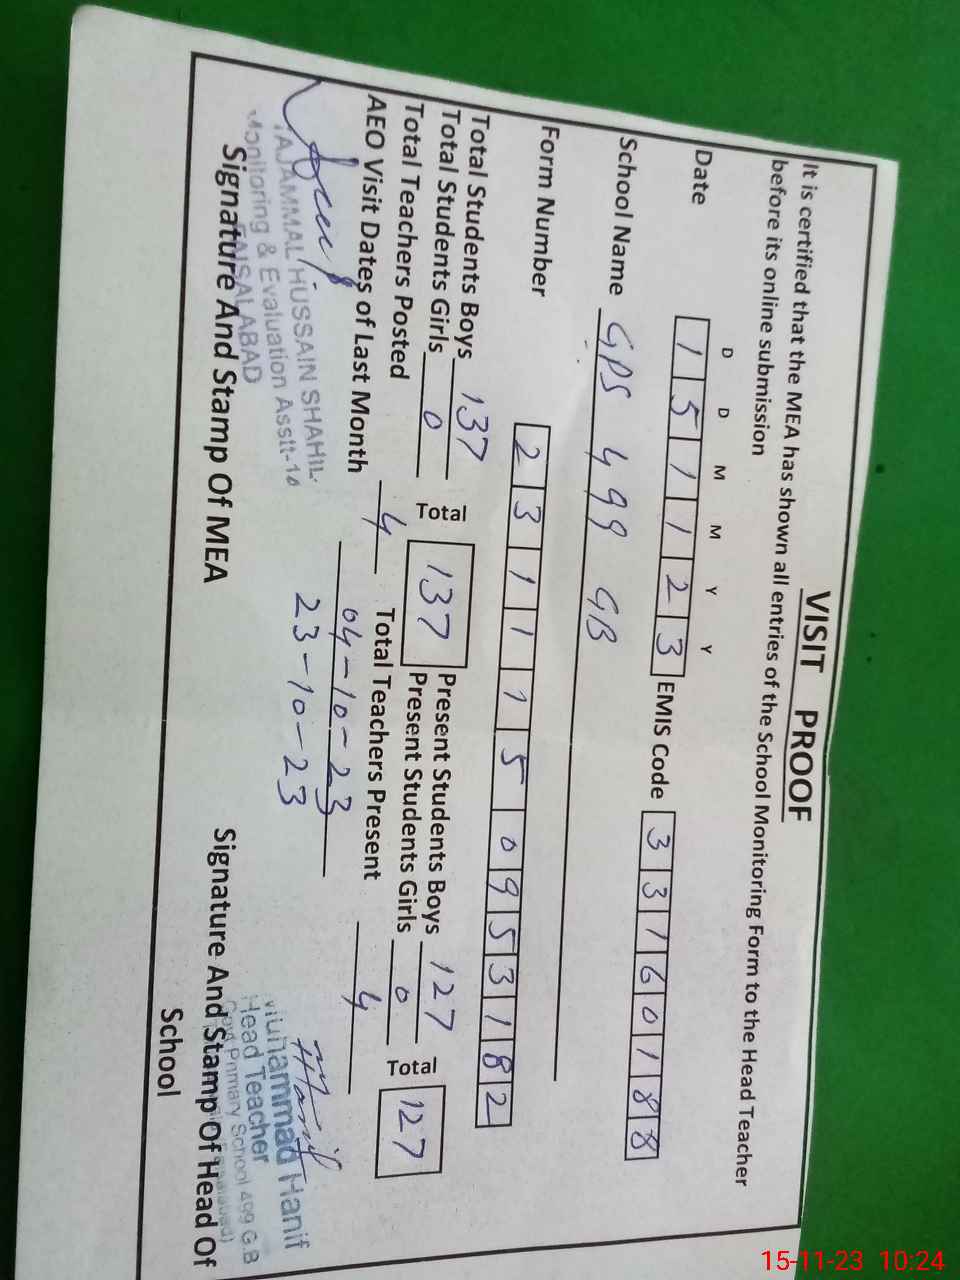 VISIT PROOF
It is certified that the MEA has shown all entries of the School Monitoring Form to the Head Teacher
before its online submission
D D M M Y Y
Date 1 5 1 1 2 3 EMIS Code 3 3 1 6 0 1 8 8
School Name GPS 499 GB
Form Number 2 3 1 1 1 5 0 9 5 3 1 8 2
Total Students Boys 137 Present Students Boys 127
Total Students Girls 0 Total 137 Present Students Girls 0 Total 127
Total Teachers Posted 4 Total Teachers Present 4
AEO Visit Dates of Last Month 04-10-23
23-10-23
TAJAMMAL HUSSAIN SHAHIL
Monitoring & Evaluation Asstt-10
FAISALABAD
Signature And Stamp Of MEA
Hanif
Muhammad Hanif
Head Teacher
Govt Primary School 499 G.B
Signature And Stamp Of Head Of
School
15-11-23 10:24